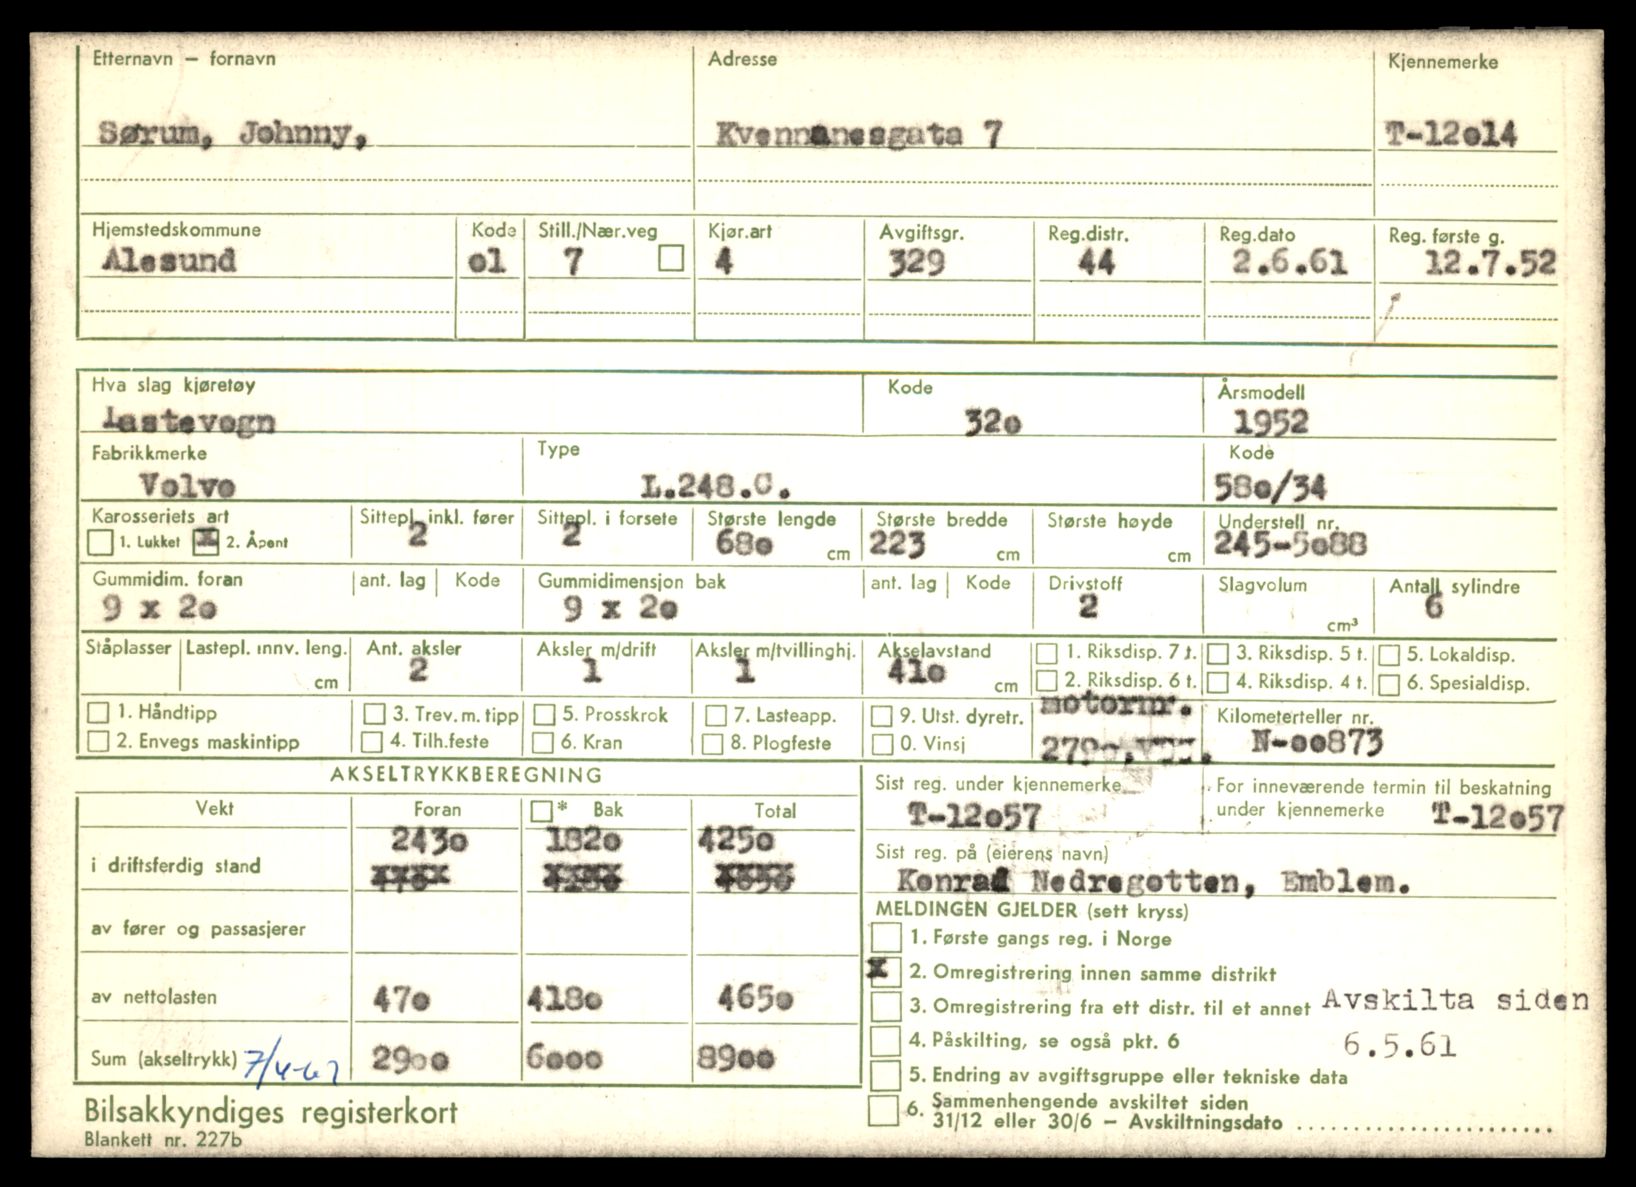 Etternavn – fornavn Adresse Kjennemerke
Sørum, Johnny, Kvennanesgata 7 T-12014
Hjemstedskommune Kode Still./Nær.veg Kjør.art Avgiftsgr. Reg.distr. Reg.dato Reg. første g.
Ålesund 01 7 4 329 44 2.6.61 12.7.52
Hva slag kjøretøy Kode Årsmodell
Lastevogn 320 1952
Fabrikkmerke Type Kode
Volvo L.248.C. 580/34
Karosseriets art Sittepl. inkl. fører Sittepl. i forsete Største lengde Største bredde Største høyde Understell nr.
1. Lukket x 2. Åpent 2 2 680 cm 223 cm cm 245-5088
Gummidim. foran ant. lag Kode Gummidimensjon bak ant. lag Kode Drivstoff Slagvolum Antall sylindre
9 x 20 9 x 20 2 cm³ 6
Ståplasser Lastepl. innv. leng. Ant. aksler Aksler m/drift Aksler m/tvillinghj. Akselavstand 1. Riksdisp. 7 t. 3. Riksdisp. 5 t. 5. Lokaldisp.
cm 2 1 1 410 cm 2. Riksdisp. 6 t. 4. Riksdisp. 4 t. 6. Spesialdisp.
1. Håndtipp 3. Trev. m. tipp 5. Prosskrok 7. Lasteapp. 9. Utst. dyretr. motornr. Kilometerteller nr.
2. Envegs maskintipp 4. Tilh.feste 6. Kran 8. Plogfeste 0. Vinsj N-00873
AKSELTRYKKBEREGNING Sist reg. under kjennemerke For inneværende termin til beskatning
Vekt Foran * Bak Total T-12057 under kjennemerke T-12057
2430 1820 4250
i driftsferdig stand Sist reg. på (eierens navn)
Konrad Nedregotten, Emblem.
MELDINGEN GJELDER (sett kryss)
av fører og passasjerer 1. Første gangs reg. i Norge
x 2. Omregistrering innen samme distrikt
av nettolasten 470 4180 4650 3. Omregistrering fra ett distr. til et annet Avskilta siden
4. Påskilting, se også pkt. 6 6.5.61
Sum (akseltrykk) 2900 6000 8900
5. Endring av avgiftsgruppe eller tekniske data
Bilsakkyndiges registerkort 6. Sammenhengende avskiltet siden
31/12 eller 30/6 – Avskiltningsdato ........................
Blankett nr. 227b